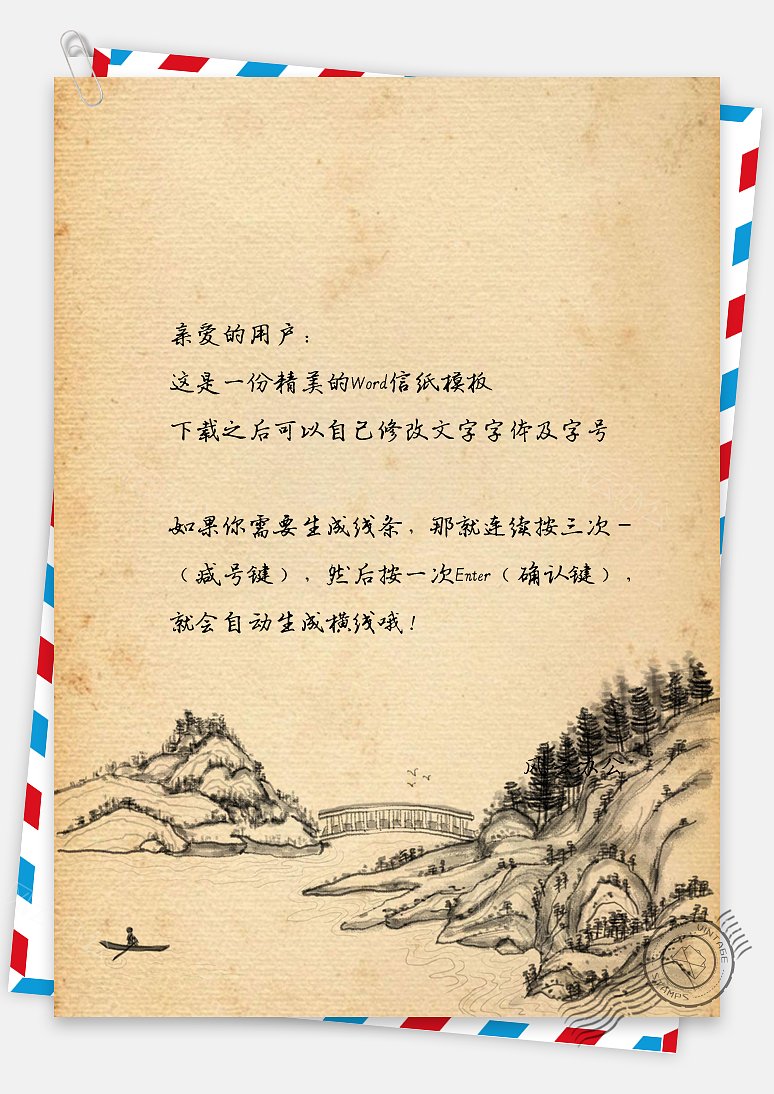 亲爱的用户：
这是一份精美的Word信纸模板
下载之后可以自己修改文字字体及字号
如果你需要生成线条，那就连续按三次－
（减号键），然后按一次Enter（确认键），
就会自动生成横线哦！
VINTAGE
STAMPS